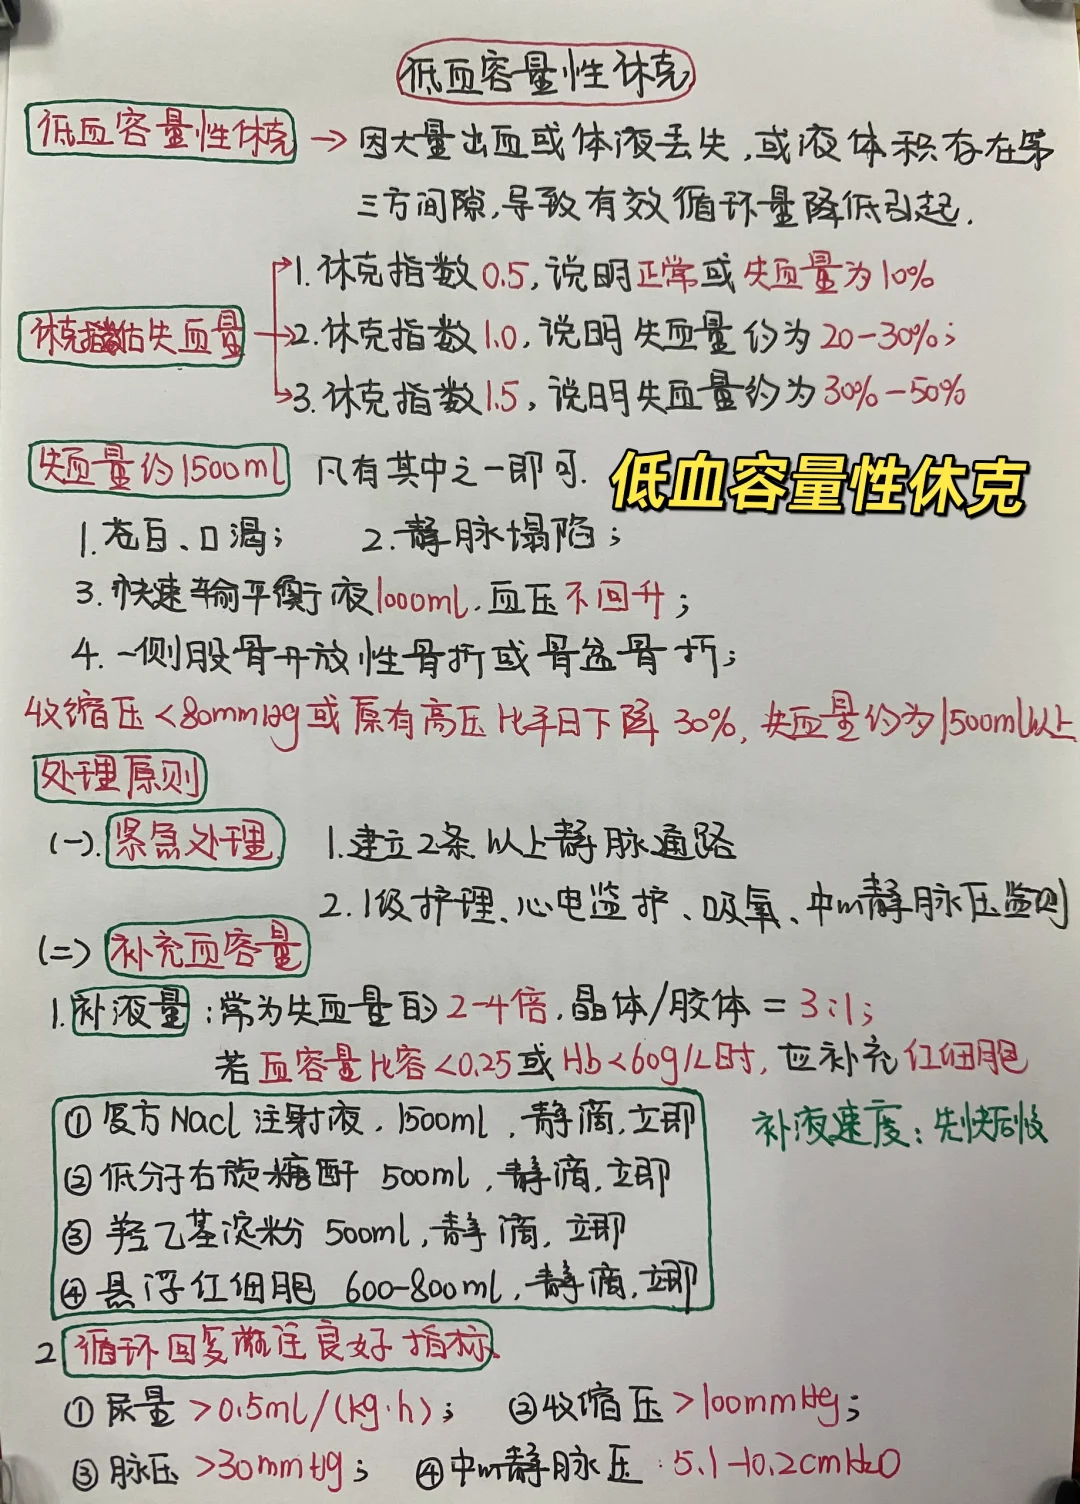 低血容量性休克
低血容量性休克 → 因大量出血或体液丢失,或液体积存在第
三方间隙,导致有效循环量降低引起.
1.休克指数0.5,说明正常或失血量为10%
休克指数估失血量 2.休克指数1.0,说明失血量约为20-30%;
3.休克指数1.5,说明失血量约为30%-50%
失血量约1500ml 凡有其中之一即可.
低血容量性休克
1.苍白、口渴; 2.静脉塌陷;
3.快速输平衡液1000ml.血压不回升;
4.一侧股骨开放性骨折或骨盆骨折;
收缩压<80mmHg或原有高压比平日下降30%,失血量约为1500ml以上
处理原则
(一).紧急处理 1.建立2条以上静脉通路
2.1级护理、心电监护、吸氧、中心静脉压监测
(二)补充血容量
1.补液量:常为失血量的2-4倍.晶体/胶体=3:1;
若血容量比容<0.25或Hb<60g/L时,应补充红细胞
①复方Nacl注射液.1500ml,静滴,立即
补液速度:先快后慢
②低分子右旋糖酐 500ml,静滴,立即
③羟乙基淀粉 500ml,静滴,立即
④悬浮红细胞 600-800ml,静滴,立即
2循环回复灌注良好指标
①尿量>0.5ml/(kg·h); ②收缩压>100mmHg;
③脉压>30mmHg; ④中心静脉压:5.1-10.2cmH2O